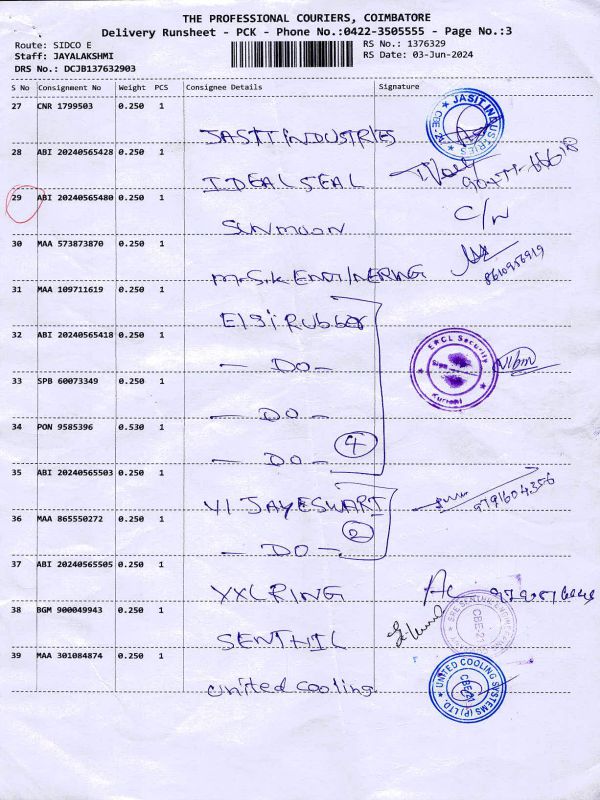 THE PROFESSIONAL COURIERS, COIMBATORE
Delivery Runsheet - PCK - Phone No.:0422-3505555 - Page No.:3
Route: SIDCO E
RS No.: 1376329
Staff: JAYALAKSHMI
RS Date: 03-Jun-2024
DRS No.: DCJB137632903
S No Consignment No Weight PCS Consignee Details Signature
27 CNR 1799503 0.250 1
JASIT INDUSTRIES
JASIT INDUSTRIES
28 ABI 20240565428 0.250 1
IDEAL SEAL
29 ABI 20240565480 0.250 1
Sunmoon
C/N
30 MAA 573873870 0.250 1
M.S.K. ENGINEERING
8610956919
31 MAA 109711619 0.250 1
Elgi Rubber
32 ABI 20240565418 0.250 1
- DO -
ERCL Security
Kurichi
33 SPB 60073349 0.250 1
- DO -
34 PON 9585396 0.530 1
- DO -
4
35 ABI 20240565503 0.250 1
VIJAYESWARI
9791604356
36 MAA 865550272 0.250 1
- DO -
2
37 ABI 20240565505 0.250 1
XXLRING
38 BGM 900049943 0.250 1
SENTHIL
CBE-21
39 MAA 301084874 0.250 1
United cooling
UNITED COOLING SYSTEMS (P) LTD.
CBE-21